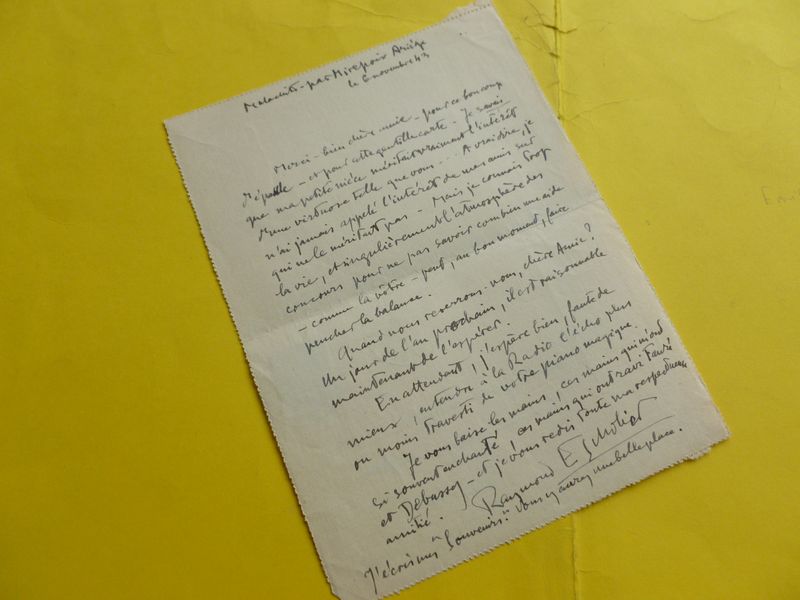 par Mirepoix Ariège
le 6 novembre 43
Merci - bien chère amie - pour ce beau coup
d'épaule - et pour cette gentille carte - Je savais
que ma petite nièce méritait vraiment l'intérêt
d'une virtuose telle que vous... A vrai dire, je
n'ai jamais appelé l'intérêt de mes amis sur
qui ne le méritait pas - Mais je connais trop
la vie, et singulièrement l'atmosphère des
concours pour ne pas savoir combien une aide
- comme la vôtre - peut, au bon moment, faire
pencher la balance.
Quand nous reverrons-nous, chère Amie?
Un jour de l'an prochain, il est raisonnable
maintenant de l'espérer.
En attendant, j'espère bien, faute de
mieux, entendre à la Radio l'écho plus
ou moins travesti de votre piano magique.
Je vous baise les mains, ces mains qui m'ont
si souvent enchanté, ces mains qui ont ravi Fauré
et Debussy - et je vous redis toute ma respectueuse
amitié.
Raymond Escholier
J'écris mes "Souvenirs". Vous y aurez une belle place.